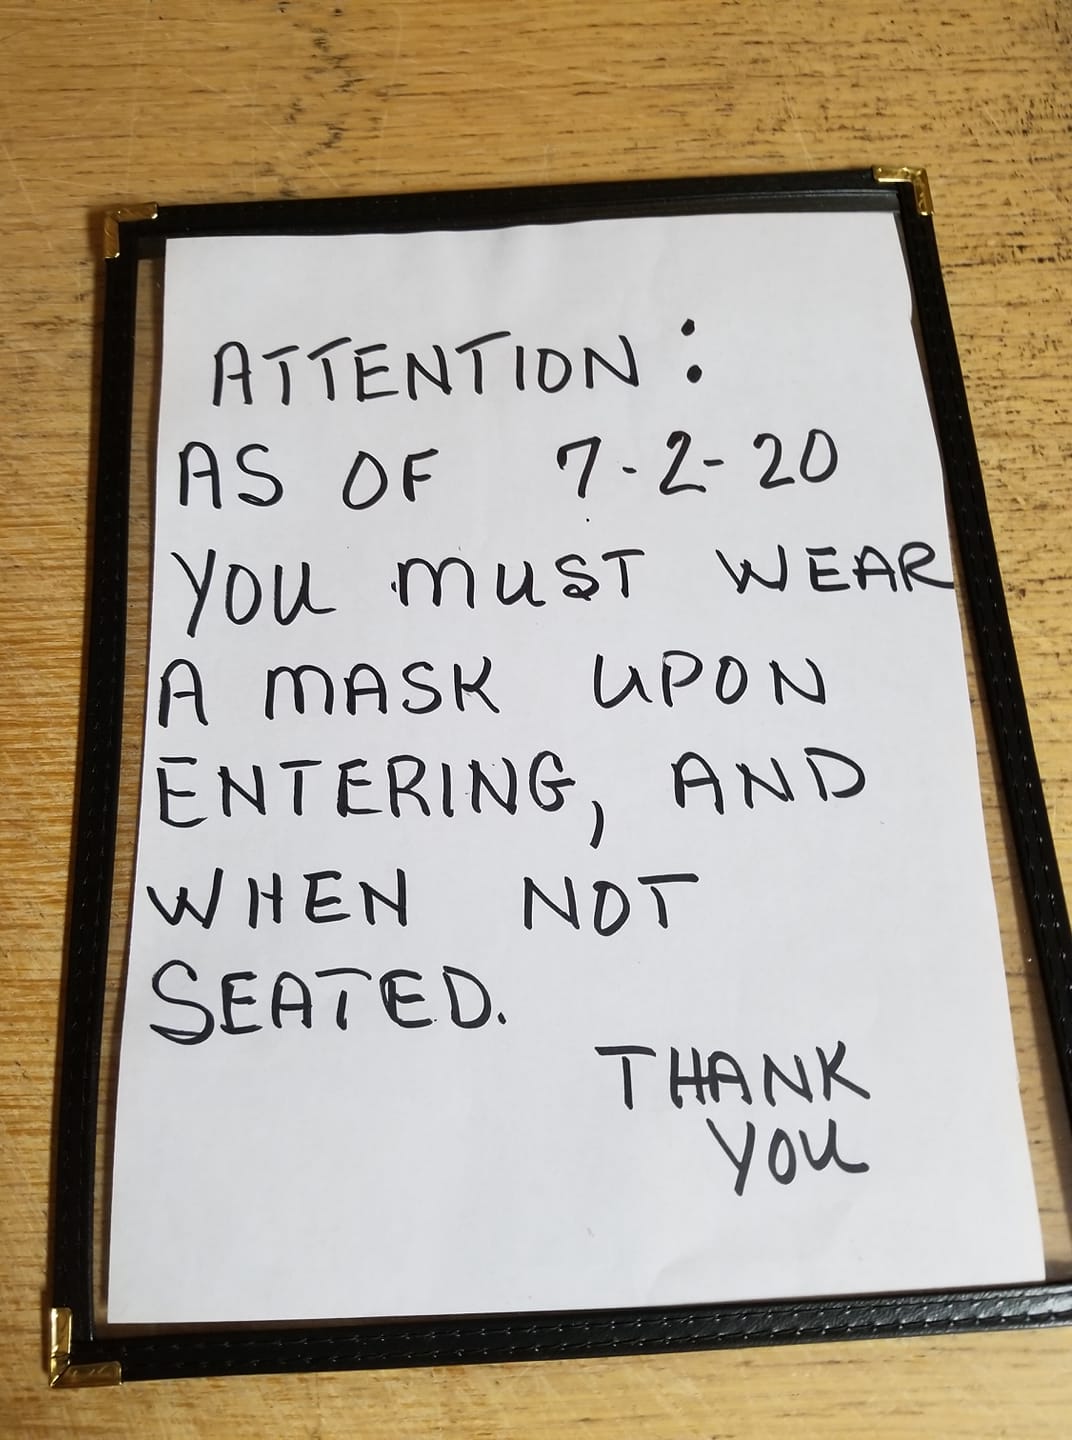 ATTENTION:
AS OF 7-2-20
YOU MUST WEAR
A MASK UPON
ENTERING, AND
WHEN NOT
SEATED.
THANK
YOU